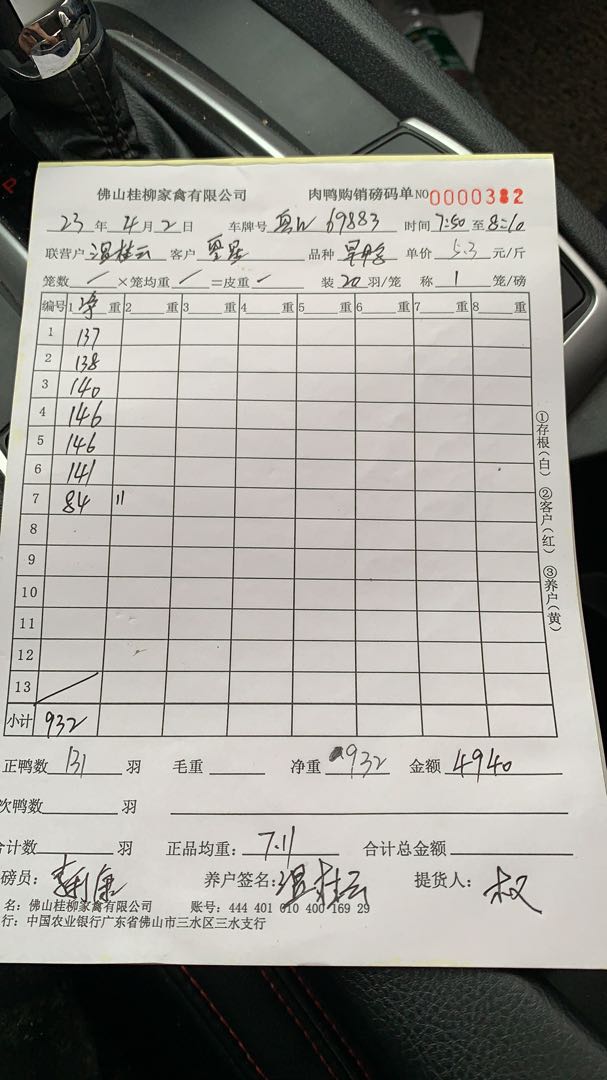 佛山桂柳家禽有限公司 肉鸭购销磅码单 NO 0000382
23 年 4 月 2 日 车牌号 69883 时间 7:50 至 8:10
联营户 温桂云 客户 品种 单价 5.3 元/斤
笼数 / ×笼均重 / =皮重 / 装 20 羽/笼 称 1 笼/磅
编号 1 净 重 2 重 3 重 4 重 5 重 6 重 7 重 8 重
1 137
2 138
3 140
4 146
5 146
6 141
7 84 11
8
9
10
11
12
13
小计 932
正鸭数 131 羽 毛重 净重 932 金额 4940
次鸭数 羽
合计数 羽 正品均重: 7.11 合计总金额
磅员: 养户签名: 温桂云 提货人: 权
名: 佛山桂柳家禽有限公司 账号: 444 401 010 400 169 29
行: 中国农业银行广东省佛山市三水区三水支行
①存根(白) ②客户(红) ③养户(黄)
P